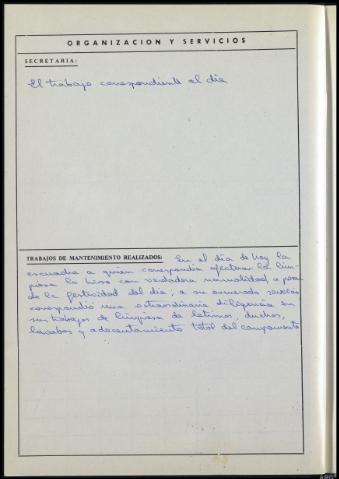 ORGANIZACION Y SERVICIOS
SECRETARIA:
El trabajo correspondiente al dia
TRABAJOS DE MANTENIMIENTO REALIZADOS: En el dia de hoy la
escuadra a quien correspondia efectuar la lim-
pieza la hizo con verdadera normalidad, a pesar
de la festividad del dia; a su esmerado
correspondió una extraordinaria diligencia en
sus trabajos de limpieza de letrinas, duchas,
lavabos y adecentamiento total del campamento